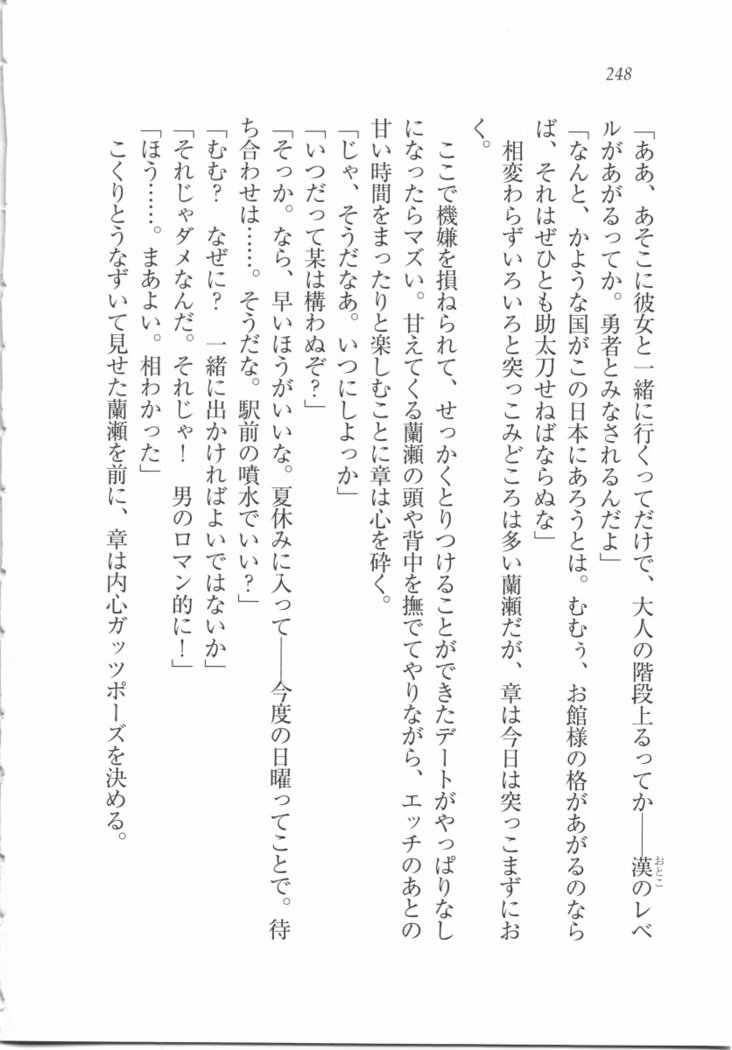 248
「ああ、あそこに彼女と一緒に行くってだけで、大人の階段上るってか――漢のレベ
おとこ
ルがあがるってか。勇者とみなされるんだよ」
「なんと、かような国がこの日本にあろうとは。むむぅ、お館様の格があがるのなら
ば、それはぜひとも助太刀せねばならぬな」
相変わらずいろいろと突っこみどころは多い蘭瀬だが、章は今日は突っこまずにお
く。
ここで機嫌を損ねられて、せっかくとりつけることができたデートがやっぱりなし
になったらマズい。甘えてくる蘭瀬の頭や背中を撫でてやりながら、エッチのあとの
甘い時間をまったりと楽しむことに章は心を砕く。
「じゃ、そうだなあ。いつにしよっか」
「いつだって某は構わぬぞ?」
「そっか。なら、早いほうがいいな。夏休みに入って――今度の日曜ってことで。待
ち合わせは……。そうだな。駅前の噴水でいい?」
「むむ? なぜに? 一緒に出かければよいではないか」
「それじゃダメなんだ。それじゃ! 男のロマン的に!」
「ほう……。まあよい。相わかった」
こくりとうなずいて見せた蘭瀬を前に、章は内心ガッツポーズを決める。